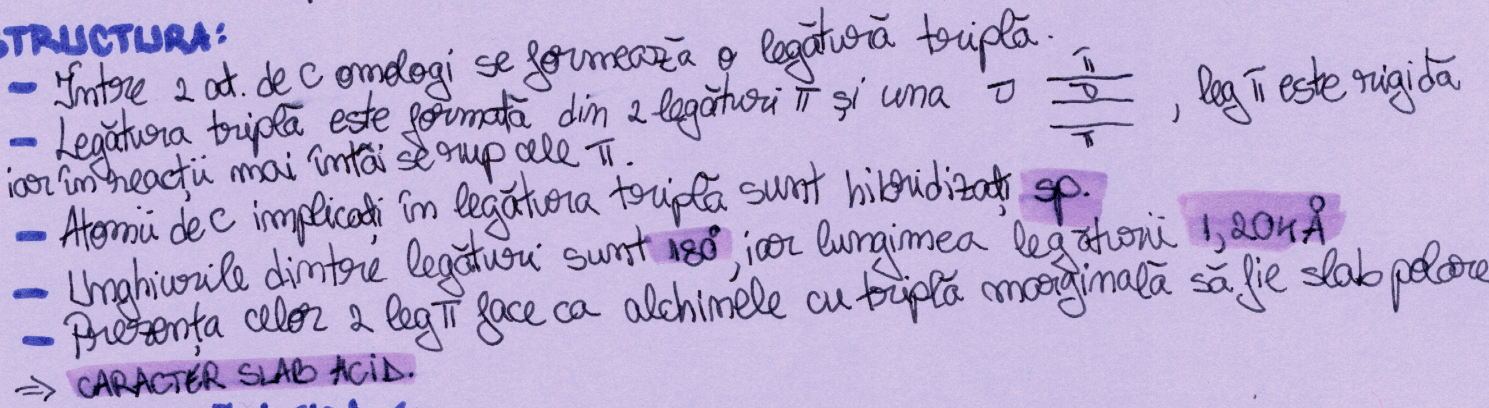 STRUCTURA:
- Între 2 at. de C omologi se formează o legătură triplă.
- Legătura triplă este formată din 2 legături π și una σ π σ π, leg π este rigidă
iar în reacții mai întâi se rup cele π.
- Atomii de C implicați în legătura triplă sunt hibridizați sp.
- Unghiurile dintre legături sunt 180°, iar lungimea legăturii 1,204 Å
- Prezența celor 2 leg π face ca alchinele cu triplă marginală să fie slab polare
⇒ CARACTER SLAB ACID.